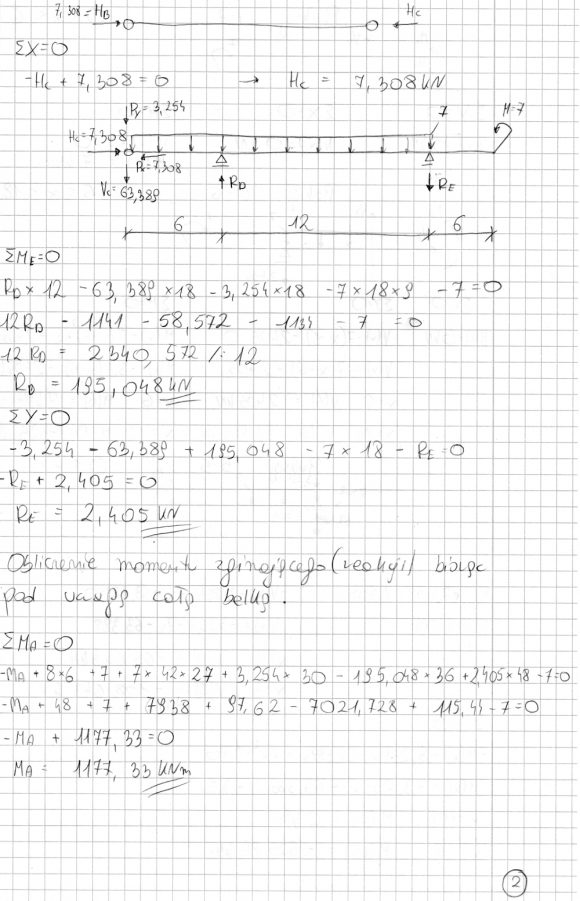 7,308 = H_B
H_C
ΣX=0
-H_C + 7,308 = 0 → H_C = 7,308 kN
P_y = 3,254
7
M=7
H_C=7,308
P_x=7,308
V_C=63,389
R_D
R_E
6 12 6
ΣM_E=0
R_D × 12 - 63,389 × 18 - 3,254 × 18 - 7 × 18 × 9 - 7 = 0
12 R_D - 1141 - 58,572 - 1134 - 7 = 0
12 R_D = 2340,572 /: 12
R_D = 195,048 kN
ΣY=0
-3,254 - 63,389 + 195,048 - 7 × 18 - R_E = 0
-R_E + 2,405 = 0
R_E = 2,405 kN
Obliczenie momentu zginającego (reakcji) biorąc
pod uwagę całą belkę.
ΣM_A=0
-M_A + 8×6 + 7 + 7 × 42 × 27 + 3,254 × 30 - 195,048 × 36 + 2,405 × 48 - 7=0
-M_A + 48 + 7 + 7938 + 97,62 - 7021,728 + 115,44 - 7=0
-M_A + 1177,33 = 0
M_A = 1177,33 kNm
2